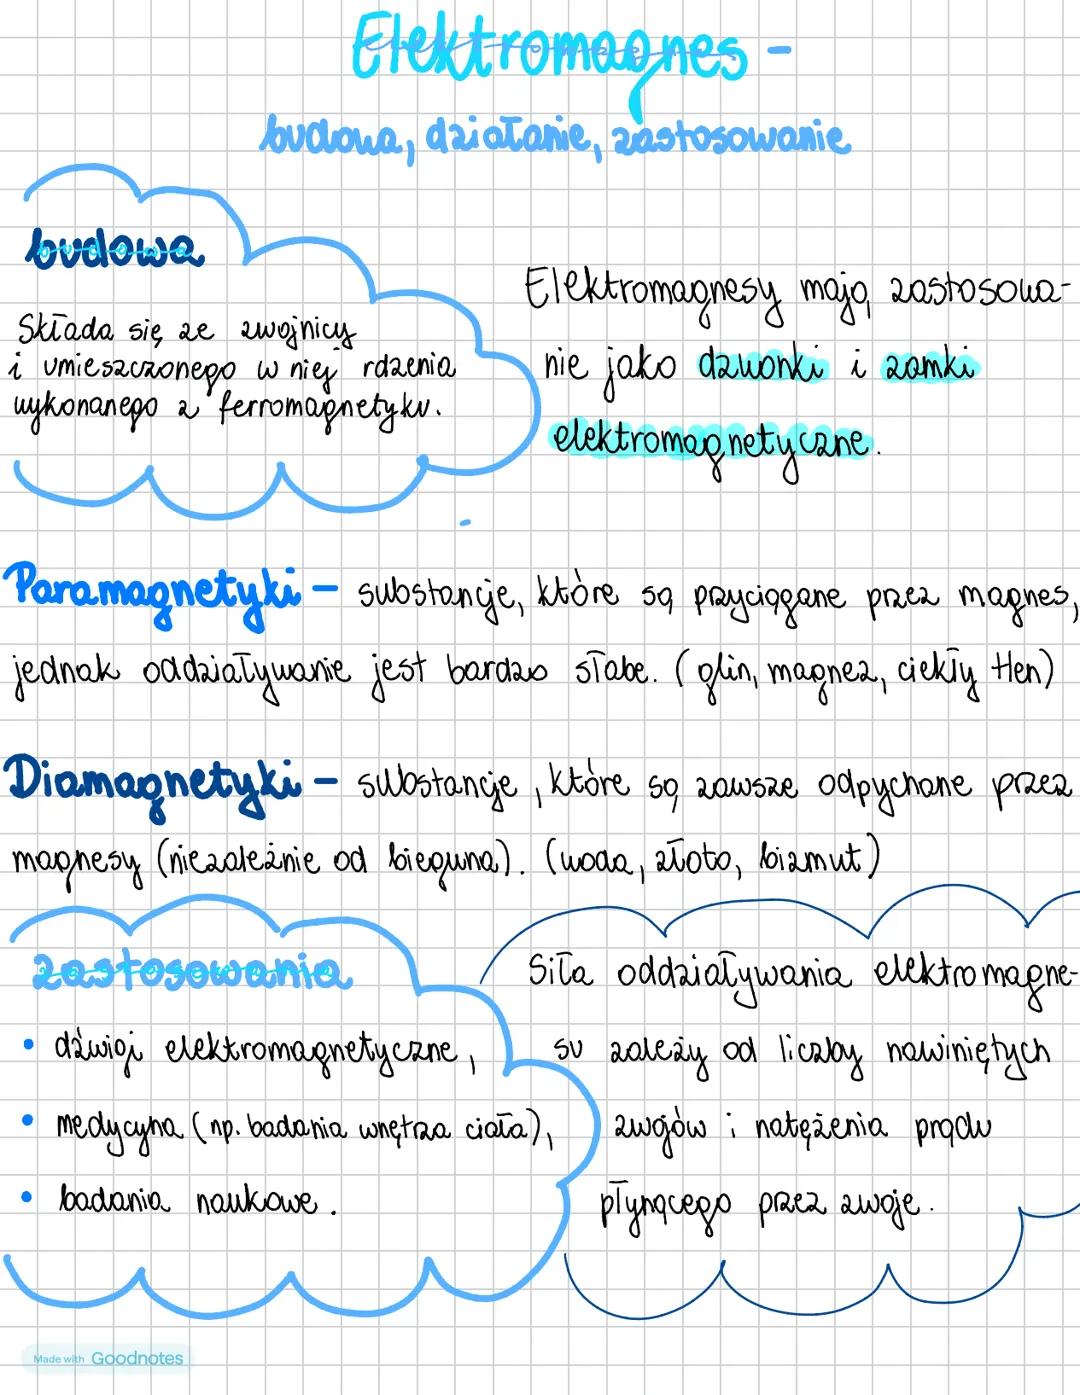 Elektromagnes -
budowa, działanie, zastosowanie
budowa
Składa się ze zwojnicy
i umieszczonego w niej rdzenia
wykonanego z ferromagnetyku.
Elektromagnesy mają zastosowa-
nie jako dzwonki i zamki
elektromagnetyczne.
Paramagnetyki - substancje, które są przyciągane przez magnes,
jednak oddziaływanie jest bardzo słabe. (glin, magnez, ciekły tlen)
Diamagnetyki - substancje, które są zawsze odpychane przez
magnesy (niezależnie od bieguna). (woda, złoto, bizmut)
zastosowania
• dźwigi elektromagnetyczne,
• medycyna (np. badania wnętrza ciała),
• badania naukowe.
Siła oddziaływania elektromagne-
su zależy od liczby nawiniętych
zwojów i natężenia prądu
płynącego przez zwoje.
Made with Goodnotes